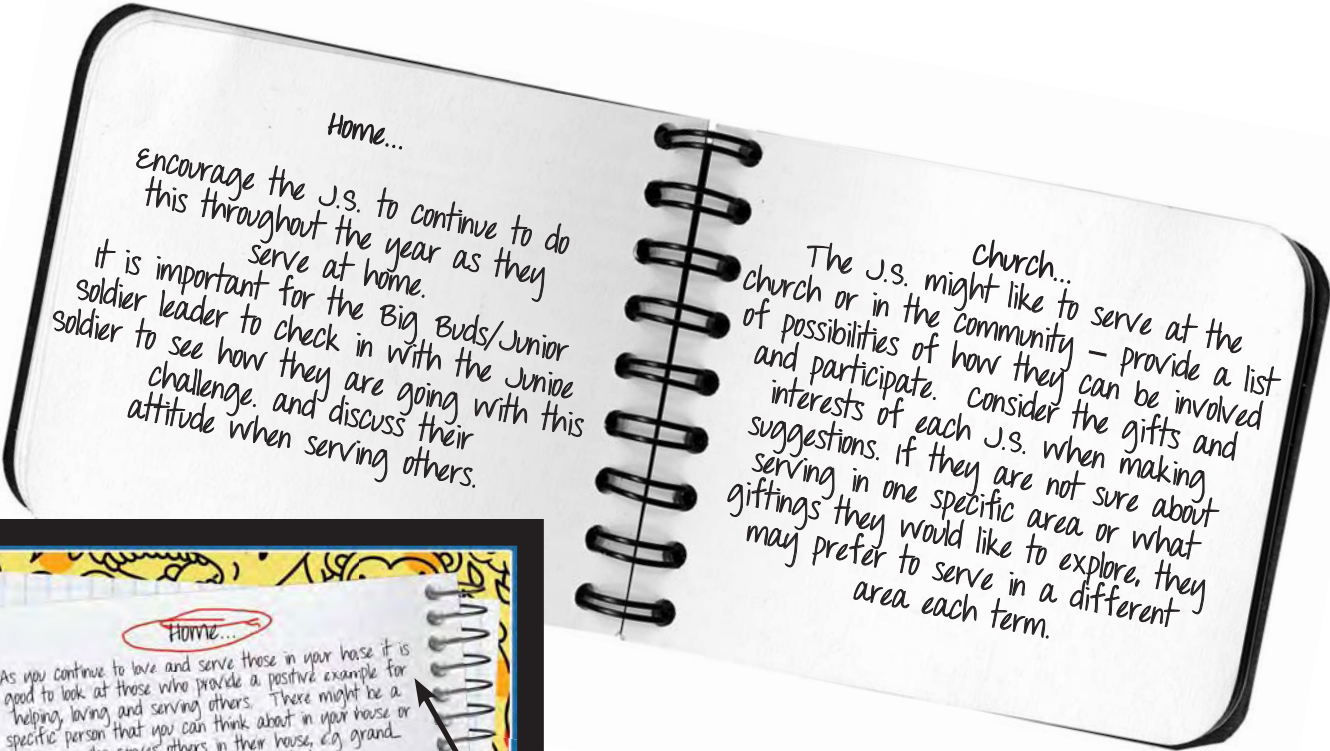 Home...
Encourage the J.S. to continue to do
this throughout the year as they
serve at home.
It is important for the Big Buds/Junior
Soldier leader to check in with the Junioe
soldier to see how they are going with this
challenge. and discuss their
attitude when serving others.
Church...
The J.S. might like to serve at the
church or in the community – provide a list
of possibilities of how they can be involved
and participate. Consider the gifts and
interests of each J.S. when making
suggestions. If they are not sure about
serving in one specific area or what
giftings they would like to explore, they
may prefer to serve in a different
area each term.
Home...
As you continue to love and serve those in your house it is
good to look at those who provide a positive example for
helping, loving and serving others. There might be a
specific person that you can think about in your house or
others in their house, e.g grand